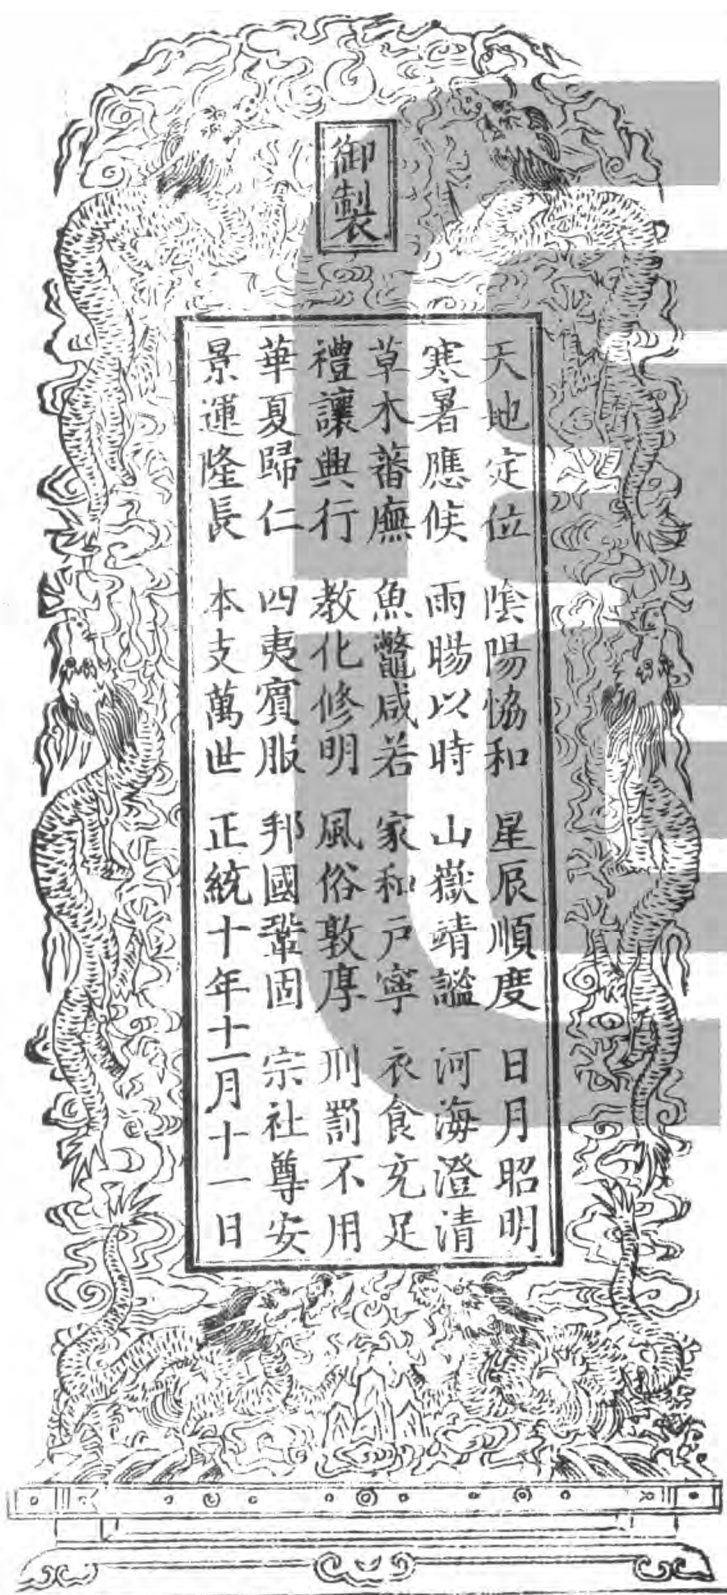 御製
天地定位 陰陽恊和 星辰順度 日月昭明
寒暑應候 雨暘以時 山嶽靖謐 河海澄清
草木蕃廡 魚鼈咸若 家和戶寧 衣食充足
禮讓興行 教化修明 風俗敦厚 刑罰不用
華夏歸仁 四夷賓服 邦國鞏固 宗社尊安
景運隆長 本支萬世 正統十年十一月十一日